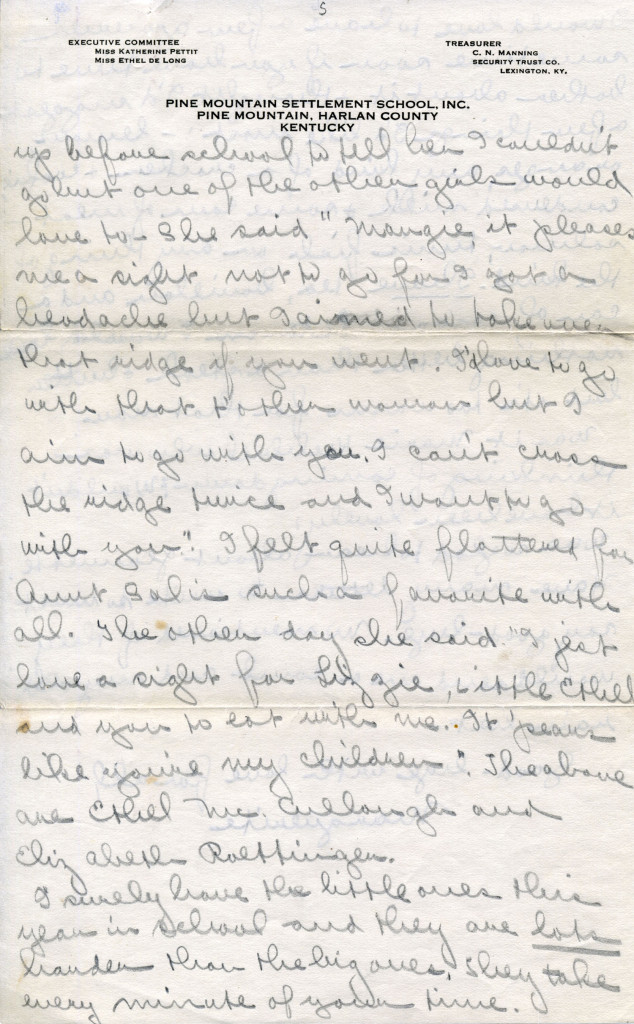 5
EXECUTIVE COMMITTEE
MISS KATHERINE PETTIT
MISS ETHEL DE LONG
TREASURER
C. N. MANNING
SECURITY TRUST CO.
LEXINGTON, KY.
PINE MOUNTAIN SETTLEMENT SCHOOL, INC.
PINE MOUNTAIN, HARLAN COUNTY
KENTUCKY
up before school to tell her I couldn't
go but one of the other girls would
love to - She said ", Mangie it pleases
me a sight not to go for I got a
headache but I aimed to take over
that ridge if you went. I'd love to go
with that t'other woman but I
aim to go with you. I can't cross
the ridge twice and I want to go
with you". I felt quite flattered for
Aunt Sal is such a favorite with
all. The other day she said "I jest
love a sight for Lizzie, Little Ethel
and you to eat with me. It 'pears
like you're my children". The above
are Ethel Mc Cullough and
Elizabeth Roettinger.
I surely have the little ones this
year in school and they are lots
harder than the big ones. They take
every minute of your time.